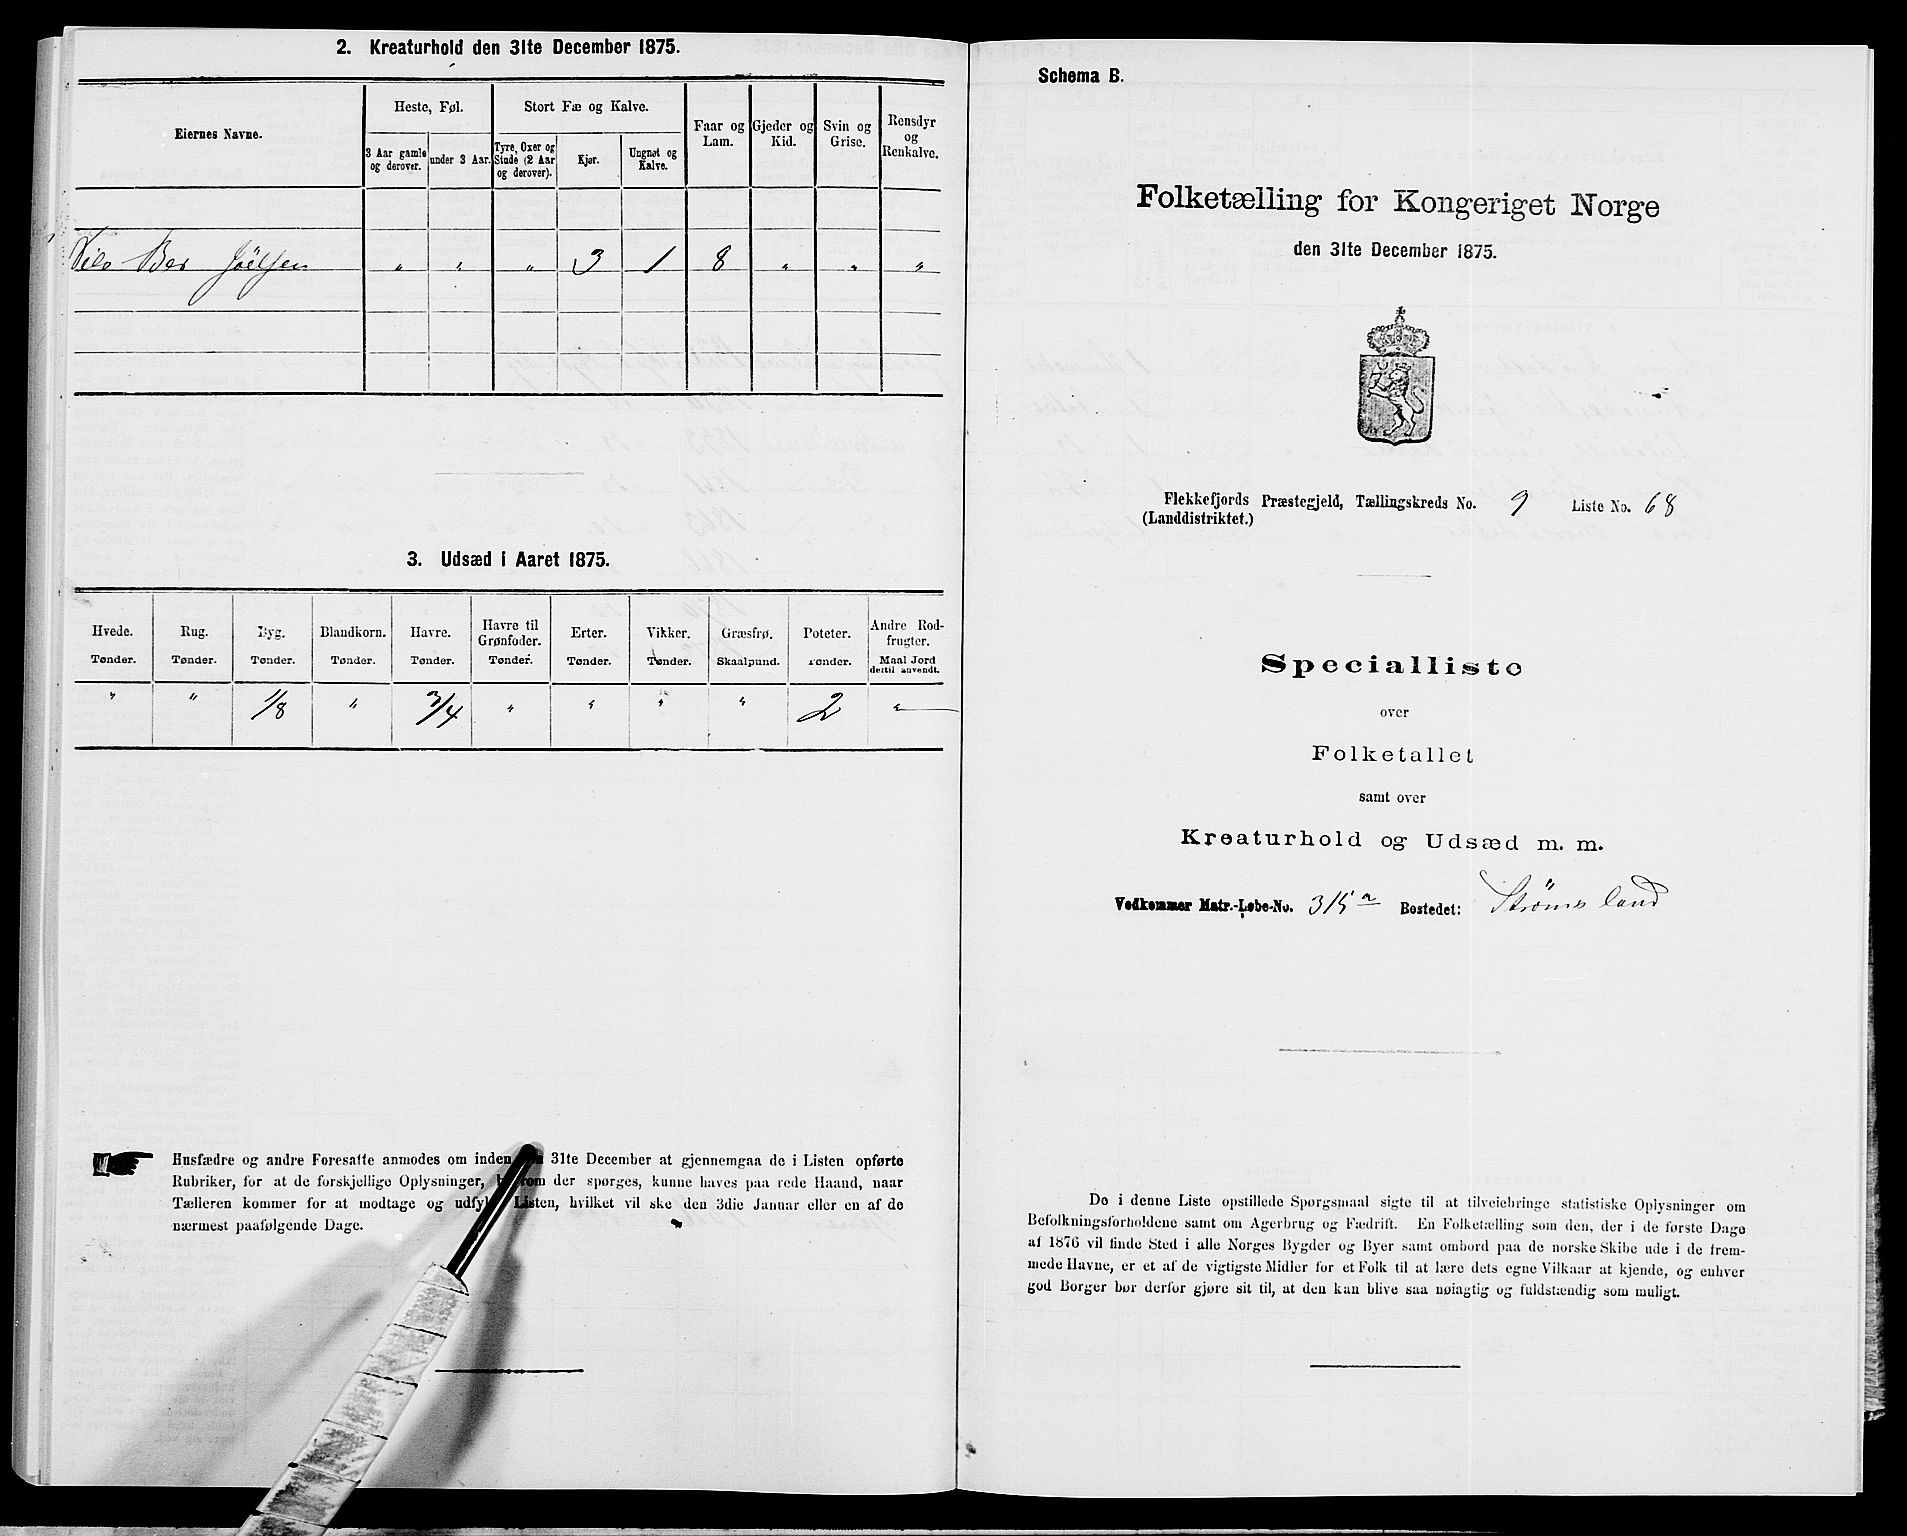 2. Kreaturhold den 31te December 1875.
Eiernes Navne.
Heste, Føl.
Stort Fæ og Kalve.
Faar og Lam.
Gjeder og Kid.
Svin og Grise.
Rensdyr og Renkalve.
3 Aar gamle og derover.
under 3 Aar.
Tyre, Oxer og Stude (2 Aar og derover).
Kjør.
Ungnøt og Kalve.
" " " 3 1 8 " " "
3. Udsæd i Aaret 1875.
Hvede. Rug. Byg. Blandkorn. Havre. Havre til Grønfoder. Erter. Vikker. Græsfrø. Poteter. Andre Rodfrugter.
Tønder. Tønder. Tønder. Tønder. Tønder. Tønder. Tønder. Tønder. Skaalpund. Tønder. Maal Jord dertil anvendt.
" " 1/8 " 3/4 " " " " 2 "
Husfædre og andre Foresatte anmodes om inden 31te December at gjennemgaa de i Listen opførte
Rubriker, for at de forskjellige Oplysninger, der spørges, kunne haves paa rede Haand, naar
Tælleren kommer for at modtage og udfylde Listen, hvilket vil ske den 3die Januar eller en af de
nærmest paafølgende Dage.
Schema B.
Folketælling for Kongeriget Norge
den 31te December 1875.
Flekkefjords Præstegjeld, Tællingskreds No. 9 Liste No. 68
(Landdistriktet.)
Specialliste
over
Folketallet
samt over
Kreaturhold og Udsæd m. m.
Vedkommer Matr.-Løbe-No. 315a Bostedet: Strømsland
De i denne Liste opstillede Spørgsmaal sigte til at tilveiebringe statistiske Oplysninger om
Befolkningsforholdene samt om Agerbrug og Fædrift. En Folketælling som den, der i de første Dage
af 1876 vil finde Sted i alle Norges Bygder og Byer samt ombord paa de norske Skibe ude i de frem-
mede Havne, er et af de vigtigste Midler for et Folk til at lære dets egne Vilkaar at kjende, og enhver
god Borger bør derfor gjøre sit til, at den kan blive saa nøiagtig og fuldstændig som muligt.